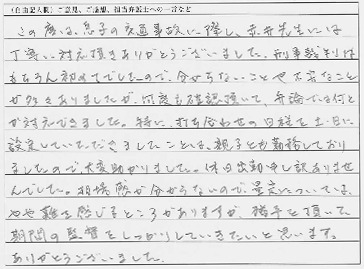 (自由記入欄)ご意見、ご感想、担当弁護士への一言など
この度は、息子の交通事故に際し、赤井先生には
丁寧に対応頂きありがとうございました。刑事裁判は
もちろん初めてでしたので、分からないことや不安なこと
が多々ありましたが、何度も確認頂いて、弁論では何と
か対応できました。特に、打ち合わせの日程を土・日に
設定していただきましたことは、親子とも勤務しており
ましたので、大変助かりました。休日出勤申し訳ありませ
んでした。相場感が分からないので、量定については、
やや難を感じるところがありますが、猶予を頂いて
期間の監督をしっかりしていきたいと思います。
ありがとうございました。